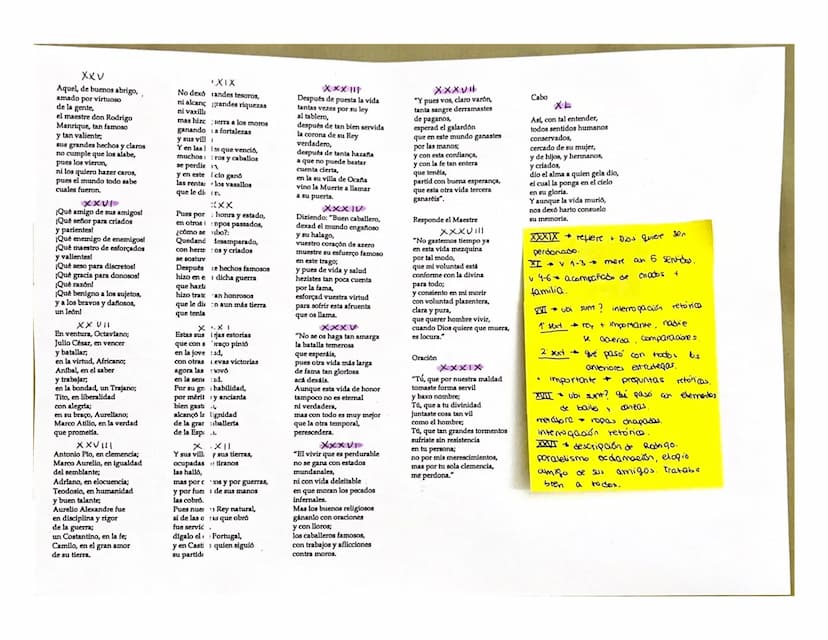 XXV
Aquel, de buenos abrigo,
amado por virtuoso
de la gente,
el maestre don Rodrigo
Manrique, tan famoso
y tan valiente;
sus grandes hechos y claros
no cumple que los alabe,
pues los vieron,
ni los quiero hazer caros,
pues el mundo todo sabe
cuales fueron.
XXVI
¡Qué amigo de sus amigos!
¡Qué señor para criados
y parientes!
¡Qué enemigo de enemigos!
¡Qué maestro de esforçados
y valientes!
¡Qué seso para discretos!
¡Qué gracia para donosos!
¡Qué razón!
¡Qué benigno a los sujetos,
y a los bravos y dañosos,
un león!
XXVII
En ventura, Octaviano;
Julio César, en vencer
y batallar;
en la virtud, Africano;
Aníbal, en el saber
y trabajar;
en la bondad, un Trajano;
Tito, en liberalidad
con alegría;
en su braço, Aureliano;
Marco Atilio, en la verdad
que prometía.
XXVIII
Antonio Pío, en clemencia;
Marco Aurelio, en igualdad
del semblante;
Adriano, en elocuencia;
Teodosio, en humanidad
y buen talante;
Aurelio Alexandre fue
en disciplina y rigor
de la guerra;
un Costantino, en la fe;
Camilo, en el gran amor
de su tierra.
XIX
No dexó grandes tesoros,
ni alcanç grandes riquezas
ni vaxill
mas hizo erra a los moros
ganando fortalezas
y sus vill
Y en las l es que venció,
muchos ros y caballos
se perdie
y en este cio ganó
las rentas los vasallos
que le di
XX
Pues por honra y estado,
en otros mpos passados,
¿cómo se bo?:
Quedand samparado,
con herm s y criados
se sostuv
Después hechos famosos
hizo en e dicha guerra
que hazí
hizo trat an honrosos
que le die n aun más tierra
que tenía
X XI
Estas sus ejas estorias
que con s raço pintó
en la jove
con otras evas victorias
agora las ovó
en la sene
Por su gr habilidad,
por mérit y ancianía
bien gasta
alcançó la gnidad
de la gran ballería
de la Esp
X XII
Y sus vill y sus tierras,
ocupadas tiranos
las halló,
mas por c s y por guerras,
y por fue de sus manos
las cobró.
Pues nues Rey natural,
si de las o as que obró
fue servid
dígalo el Portugal,
y en Casti quien siguió
su partido
XXXIII
Después de puesta la vida
tantas vezes por su ley
al tablero,
después de tan bien servida
la corona de su Rey
verdadero,
después de tanta hazaña
a que no puede bastar
cuenta cierta,
en la su villa de Ocaña
vino la Muerte a llamar
a su puerta.
XXXIV
Diziendo: "Buen caballero,
dexad el mundo engañoso
y su halago,
vuestro coraçón de azero
muestre su esfuerço famoso
en este trago;
y pues de vida y salud
hezistes tan poca cuenta
por la fama,
esforçad vuestra virtud
para sofrir esta afruenta
que os llama.
XXXV
"No se os haga tan amarga
la batalla temerosa
que esperáis,
pues otra vida más larga
de fama tan gloriosa
acá dexáis.
Aunque esta vida de honor
tampoco no es eternal
ni verdadera,
mas con todo es muy mejor
que la otra temporal,
perescedera.
XXXVI
"El vivir que es perdurable
no se gana con estados
mundanales,
ni con vida deleitable
en que moran los pecados
infernales.
Mas los buenos religiosos
gánanlo con oraciones
y con lloros;
los caballeros famosos,
con trabajos y aflicciones
contra moros.
XXXVII
"Y pues vos, claro varón,
tanta sangre derramastes
de paganos,
esperad el galardón
que en este mundo ganastes
por las manos;
y con esta confiança,
y con la fe tan entera
que tenéis,
partid con buena esperança,
que esta otra vida tercera
ganaréis".
Responde el Maestre
XXXVIII
"No gastemos tiempo ya
en esta vida mezquina
por tal modo,
que mi voluntad está
conforme con la divina
para todo;
y consiento en mi morir
con voluntad plazentera,
clara y pura,
que querer hombre vivir,
cuando Dios quiere que muera,
es locura."
Oración
XXXIX
"Tú, que por nuestra maldad
tomaste forma servil
y baxo nombre;
Tú, que a tu divinidad
juntaste cosa tan vil
como el hombre;
Tú, que tan grandes tormentos
sufriste sin resistencia
en tu persona;
no por mis merescimientos,
mas por tu sola clemencia,
me perdona."
Cabo
XL
Así, con tal entender,
todos sentidos humanos
conservados,
cercado de su mujer,
y de hijos, y hermanos,
y criados,
dio el alma a quien gela dio,
el cual la ponga en el cielo
en su gloria.
Y aunque la vida murió,
nos dexó harto consuelo
su memoria.
XXXIX → refiere a Dios quiere ser
perdonado.
XL → v 1-3 → mere an 5 sentidos.
v 4-6 → acompañado de criados +
familia.
XVI → ubi sunt? interrogación retórica
1 sxt → rey + importante, nadie
se acuerda, comparaciones.
2 sxt → qué pasó con todos los
anteriores estrategas.
+ importante → preguntas retóricas.
XVII → ubi sunt? Qué pasó con elementos
de baile y cantes.
metáfora → ropas chapadas.
interrogación retórica.
XXVI → descripción de Rodrigo.
paralelismo exclamación, elogio
amigo de sus amigos. Trataba
bien a todos.